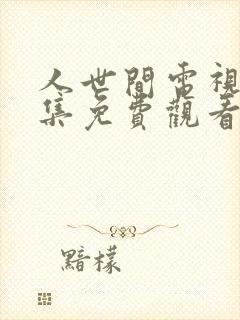 人世間電視
集免費觀看
黯檬